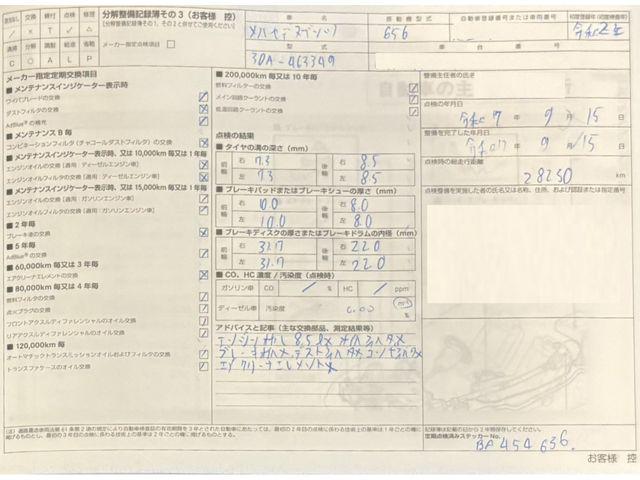 分解整備記録簿その3(お客様 控)
点検 修理
交換 締付
清掃 分解 調整 給油 省略
C O A L P
メーカー指定点検項目
車名 メルセデスベンツ
原動機型式 656
自動車登録番号または車両番号
初度登録年(初度検査年)
型式 3DA-463349
車台番号
メーカー指定定期交換項目
■ メンテナンスインジケーター表示時
ワイパブレードの交換
ダストフィルタの交換
AdBlue®の補充
■ メンテナンスB 毎
コンビネーションフィルタ(チャコールダストフィルタ)の交換
■ メンテナンスインジケーター表示時、又は 10,000km 毎又は1年毎
エンジンオイルの交換[適用:ディーゼルエンジン車]
エンジンオイルフィルタの交換[適用:ディーゼルエンジン車]
■ メンテナンスインジケーター表示時、又は 15,000km 毎又は1年毎
エンジンオイルの交換[適用:ガソリンエンジン車]
エンジンオイルフィルタの交換[適用:ガソリンエンジン車]
■ 2 年毎
ブレーキ液の交換
■ 5 年毎
AdBlue®の交換
■ 60,000km 毎又は 3 年毎
エアクリナーエレメントの交換
■ 80,000km 毎又は 4 年毎
燃料フィルタの交換
点火プラグの交換
フロントアクスルディファレンシャルのオイル交換
リアアクスルディファレンシャルのオイル交換
■ 120,000km 毎
オートマチックトランスミッションオイルおよびフィルタの交換
トランスファケースのオイル交換
■ 200,000km 毎又は 10 年毎
燃料フィルターの交換
メイン回路クーラントの交換
低温回路クーラントの交換
点検の結果
■ タイヤの溝の深さ(mm)
前輪 右 7.3 後輪 右 8.5
左 7.3 左 8.5
■ ブレーキパッドまたはブレーキシューの厚さ(mm)
前輪 右 10.0 後輪 右 8.0
左 10.0 左 8.0
■ ブレーキディスクの厚さまたはブレーキドラムの内径(mm)
前輪 右 31.7 後輪 右 22.0
左 31.7 左 22.0
■ CO、HC 濃度 / 汚染度(点検時)
ガソリン車 CO / % HC / ppm
ディーゼル車 汚染度 0.00 m-1
アドバイスと記事(主な交換部品、測定結果等)
整備主任者の氏名
点検の年月日
令和 7 年 9 月 15 日
整備を完了した年月日
令和 7 年 9 月 15 日
点検時の総走行距離
28250 km
点検整備を実施した者の氏名又は名称、住所、および認証または指定番号
記録簿は記載の日から2年間保存してください。
定期点検済みステッカー No.
BA 454 636
お客様 控